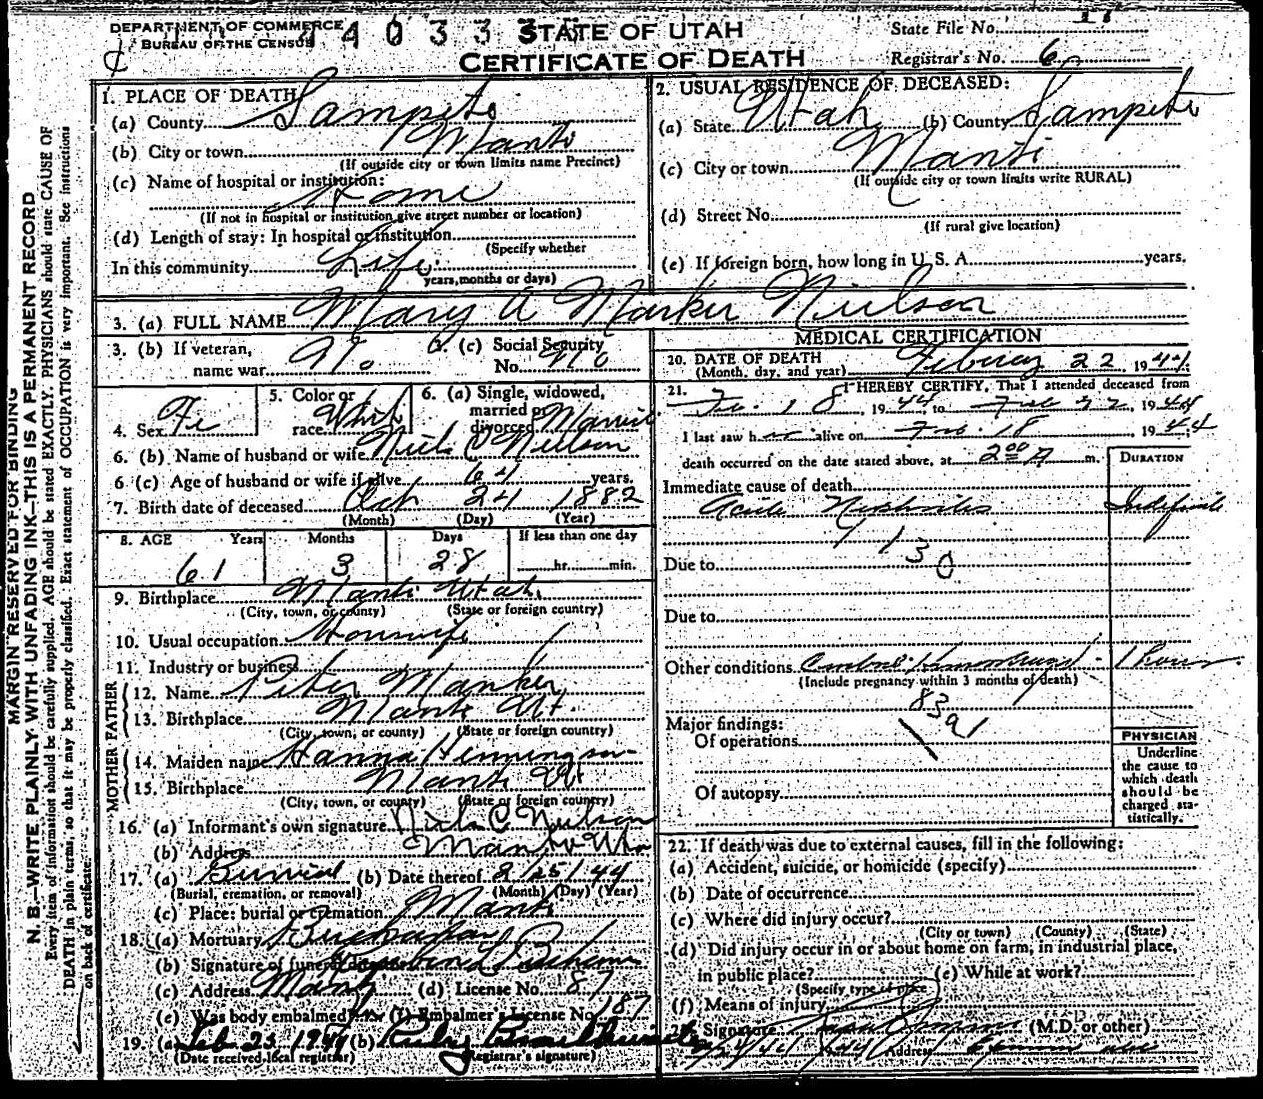 DEPARTMENT OF COMMERCE
BUREAU OF THE CENSUS
4 4 0 3 3
STATE OF UTAH
CERTIFICATE OF DEATH
State File No.
Registrar's No. 6
MARGIN RESERVED FOR BINDING
N. B.—WRITE PLAINLY WITH UNFADING INK—THIS IS A PERMANENT RECORD
Every item of information should be carefully supplied. AGE should be stated EXACTLY. PHYSICIANS should state CAUSE OF
DEATH in plain terms, so that it may be properly classified. Exact statement of OCCUPATION is very important. See instructions
on back of certificate.
1. PLACE OF DEATH
(a) County Sanpete
(b) City or town Manti
(If outside city or town limits name Precinct)
(c) Name of hospital or institution:
Home
(If not in hospital or institution give street number or location)
(d) Length of stay: In hospital or institution
(Specify whether
In this community Life
years, months or days)
2. USUAL RESIDENCE OF DECEASED:
(a) State Utah (b) County Sanpete
(c) City or town Manti
(If outside city or town limits write RURAL)
(d) Street No.
(If rural give location)
(e) If foreign born, how long in U. S. A. years.
3. (a) FULL NAME Mary A Marker Nielson
3. (b) If veteran, name war No
3. (c) Social Security No. No
4. Sex Fe
5. Color or race White
6. (a) Single, widowed, married or divorced Married
6. (b) Name of husband or wife Niels C Nielson
6 (c) Age of husband or wife if alive 64 years.
7. Birth date of deceased Oct 24 1882
(Month) (Day) (Year)
8. AGE Years Months Days If less than one day
61 3 28 hr. min.
9. Birthplace Manti Utah
(City, town, or county) (State or foreign country)
10. Usual occupation Housewife
11. Industry or business
FATHER
12. Name Peter Marker
13. Birthplace Manti Ut.
(City, town, or county) (State or foreign country)
MOTHER
14. Maiden name Hanna Henningson
15. Birthplace Manti Ut
(City, town, or county) (State or foreign country)
16. (a) Informant's own signature Niels C Nielson
(b) Address Manti Uta
17. (a) Burial (b) Date thereof 2/25/44
(Burial, cremation, or removal) (Month) (Day) (Year)
(c) Place: burial or cremation Manti
18. (a) Mortuary Buchanan
(b) Signature of funeral director
(c) Address Manti (d) License No. 87
(e) Was body embalmed? (f) Embalmer's License No. 187
19. (a) Feb 23, 1944 (b) Ruby
(Date received, local registrar) (Registrar's signature)
MEDICAL CERTIFICATION
20. DATE OF DEATH
(Month, day, and year) Febuary 22, 1944
21. I HEREBY CERTIFY, That I attended deceased from
Feb. 18, 1944 to Feb 22, 1944
I last saw h alive on Feb. 18 1944
death occurred on the date stated above, at 2 00 A m.
DURATION
Immediate cause of death
Acute Nephritis Indefinite
130
Due to
Due to
Other conditions Cerebral Hemorrhage - 1 hour
(Include pregnancy within 3 months of death)
83a1
Major findings:
Of operations
Of autopsy
PHYSICIAN
Underline
the cause to
which death
should be
charged sta-
tistically.
22. If death was due to external causes, fill in the following:
(a) Accident, suicide, or homicide (specify)
(b) Date of occurrence
(c) Where did injury occur?
(City or town) (County) (State)
(d) Did injury occur in or about home on farm, in industrial place,
in public place? (e) While at work?
(Specify type of place)
(f) Means of injury
Signature (M.D. or other)
Address